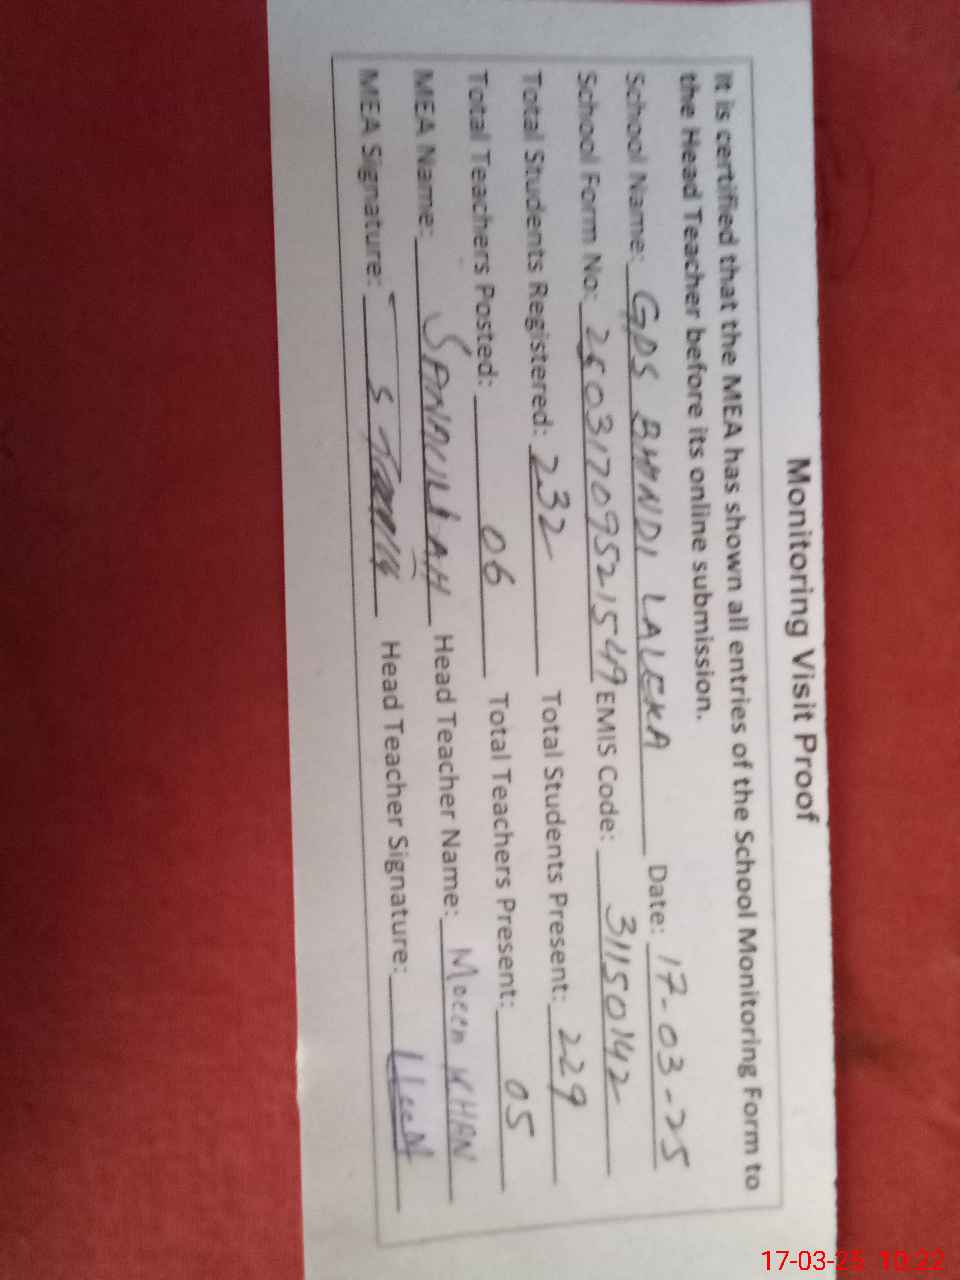 Monitoring Visit Proof
It is certified that the MEA has shown all entries of the School Monitoring Form to
the Head Teacher before its online submission.
School Name: GPS BHINDI LALEKA Date: 17-03-25
School Form No: 26031709521549 EMIS Code: 31150142
Total Students Registered: 232 Total Students Present: 229
Total Teachers Posted: 06 Total Teachers Present: 05
MEA Name: SANAULLAH Head Teacher Name: Moeen KHAN
MEA Signature: Head Teacher Signature:
17-03-25 10:22